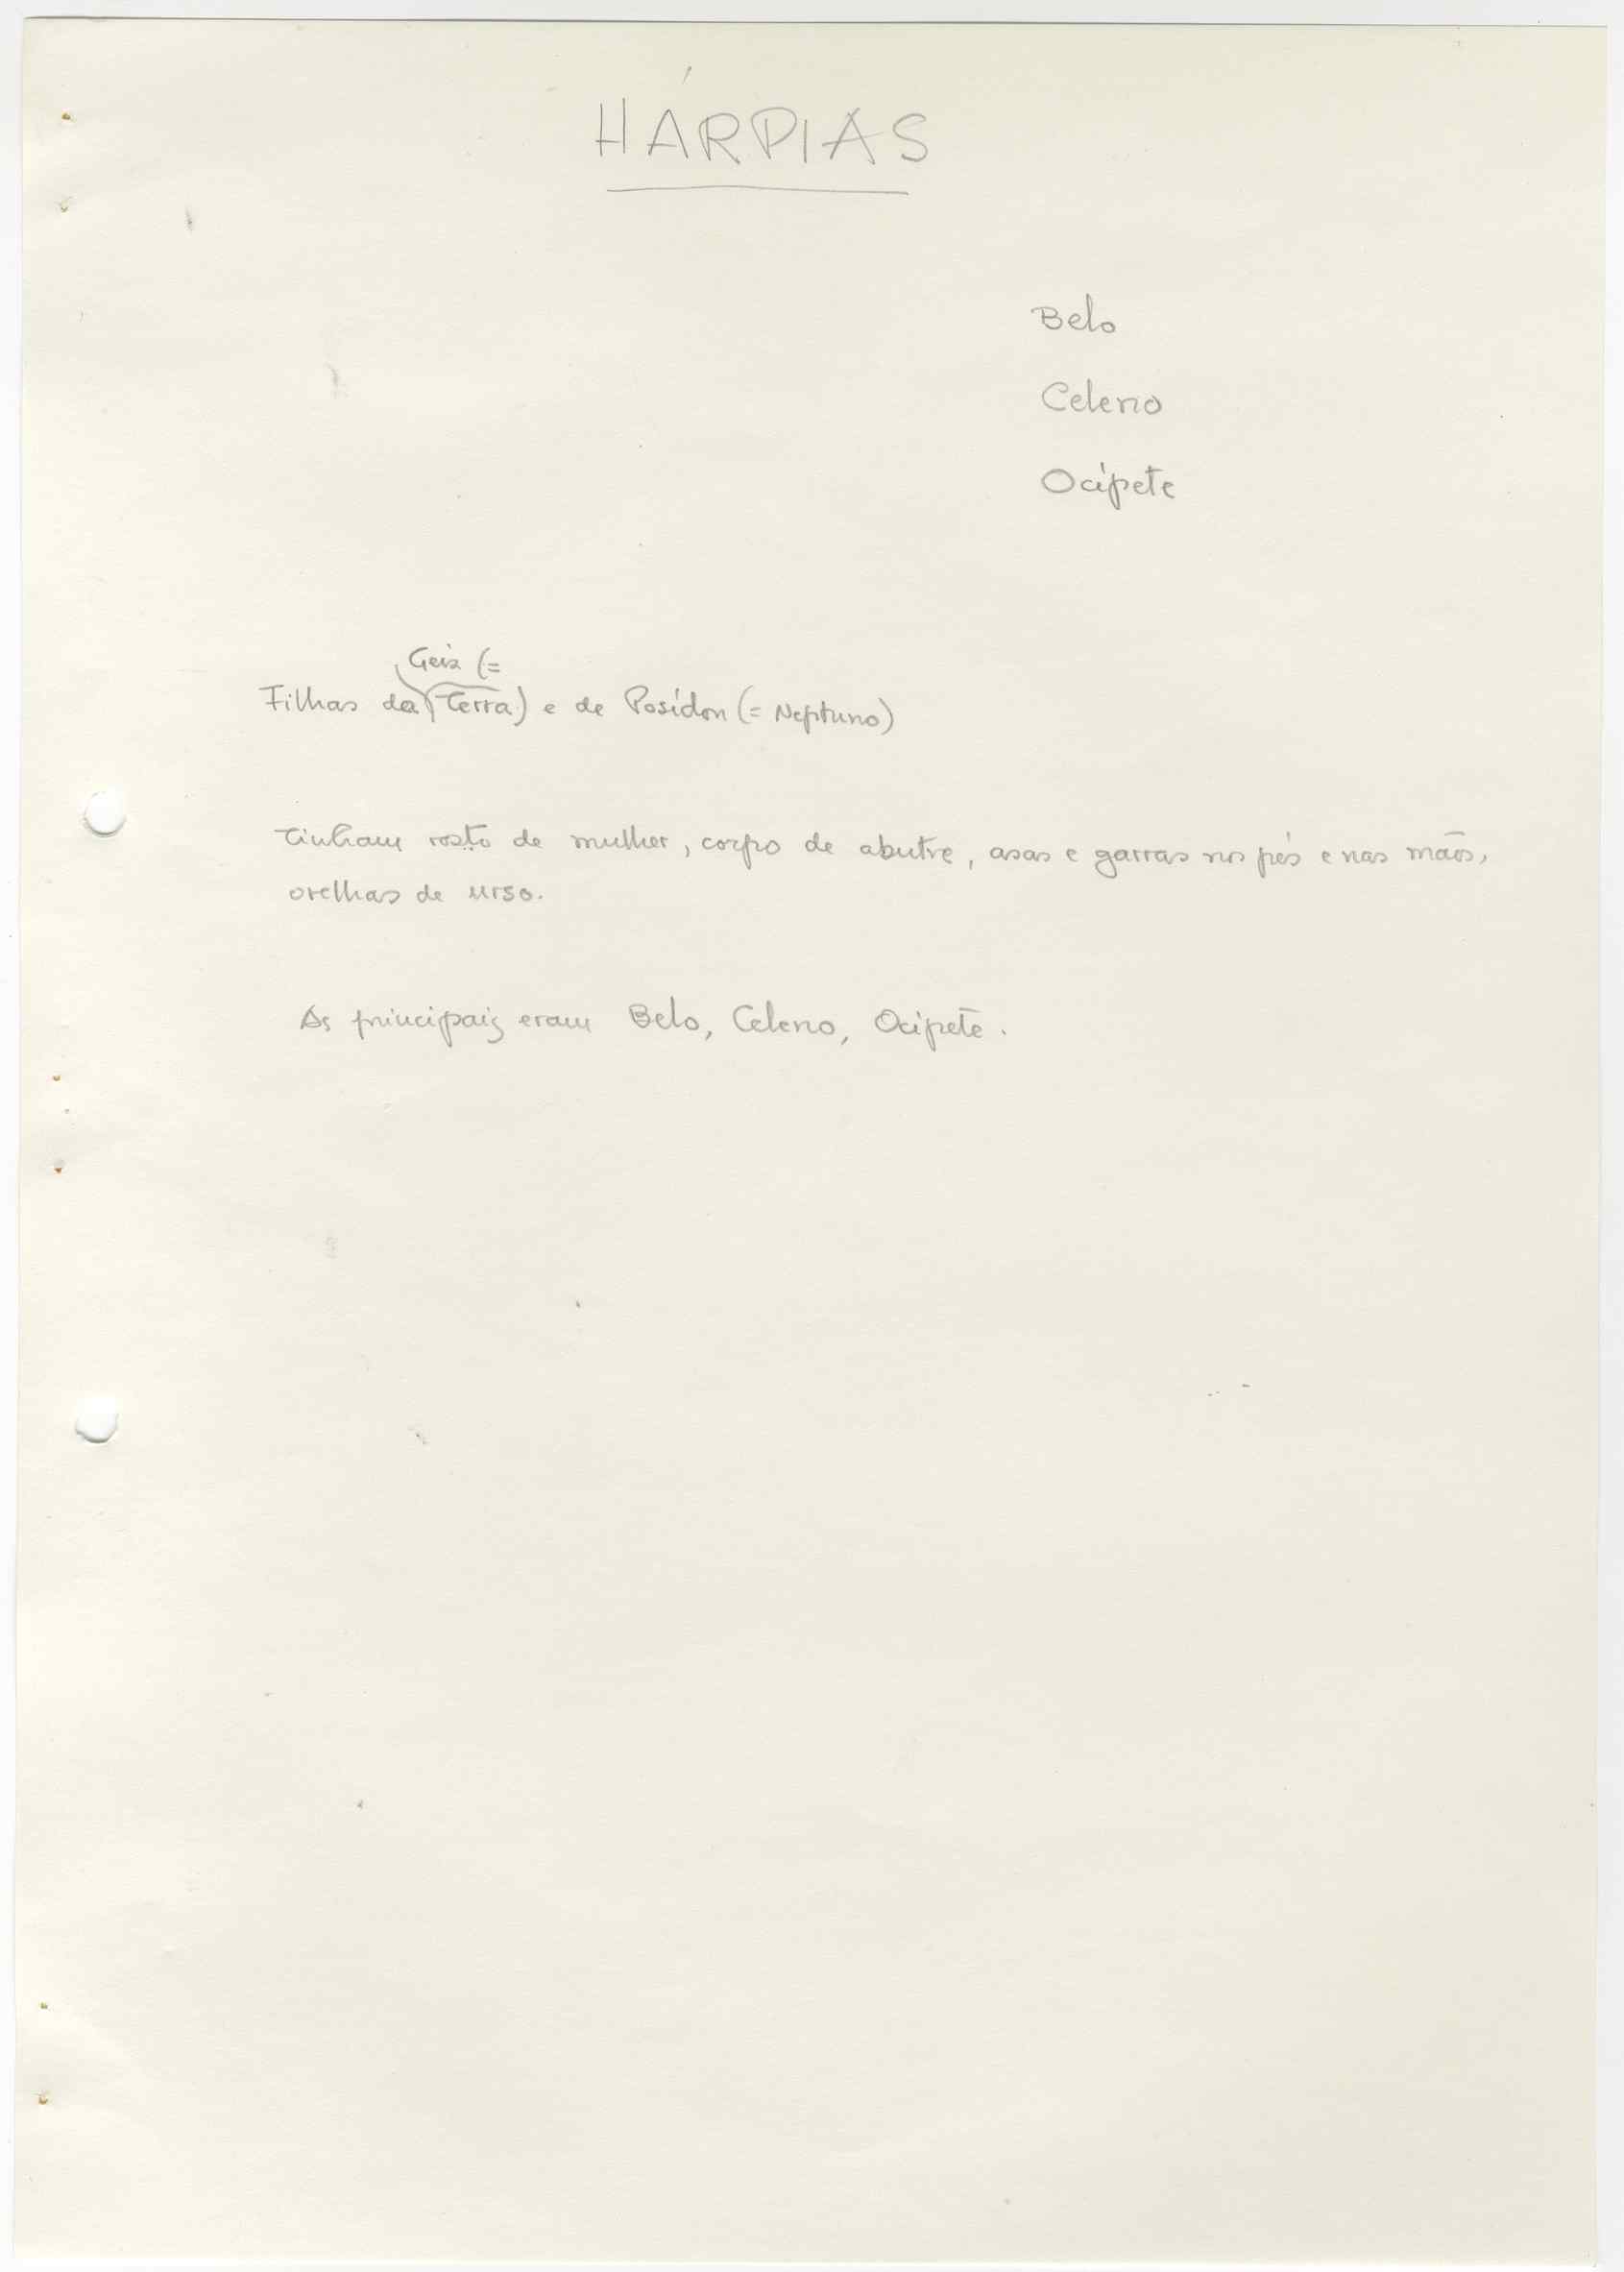 HÁRPIAS
Belo
Celeno
Ocípete
Geia (=
Filhas da Terra) e de Posídon (= Neptuno)
Tinham rosto de mulher, corpo de abutre, asas e garras nos pés e nas mãos,
orelhas de urso.
As principais eram Belo, Celeno, Ocípete.